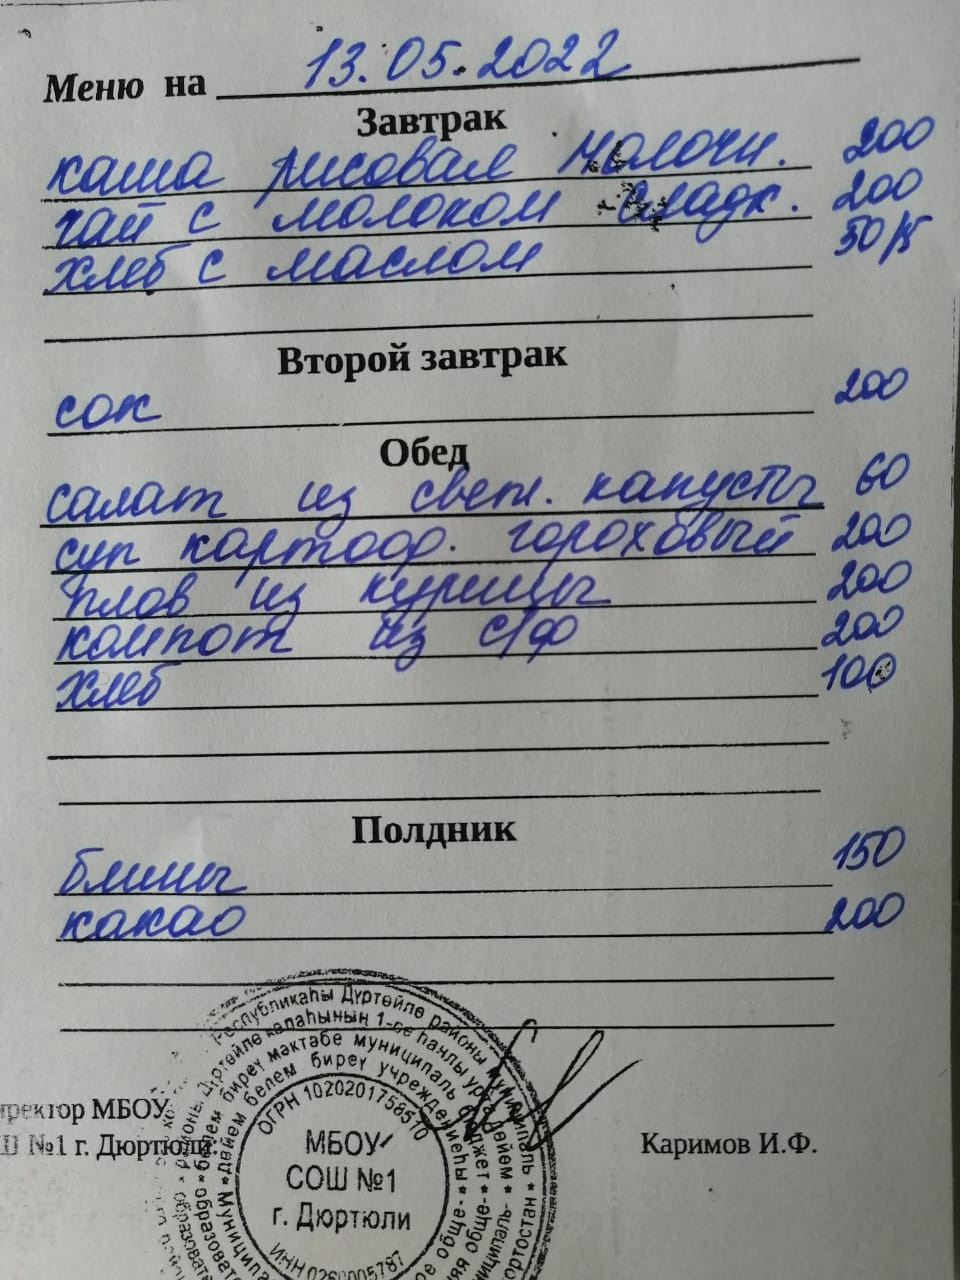 Меню на 13.05.2022
Завтрак
каша рисовая молочн. 200
чай с молоком сладк. 200
хлеб с маслом 50/5
Второй завтрак
сок 200
Обед
салат из свеж. капусты 60
суп картоф. гороховый 200
плов из курицы 200
компот из с/ф 200
хлеб 100
Полдник
блины 150
какао 200
иректор МБОУ
Ш №1 г. Дюртюли.
Каримов И.Ф.
Республикаһы Дүртөйлө районы муниципаль
Дүртөйле ҡалаһының 1-се һанлы урта дөйөм
белем биреү мәктәбе муниципаль бюджет
дөйөм белем биреү учреждениеһы
ОГРН 1020201758510
МБОУ
СОШ №1
г. Дюртюли
ИНН 0260005787